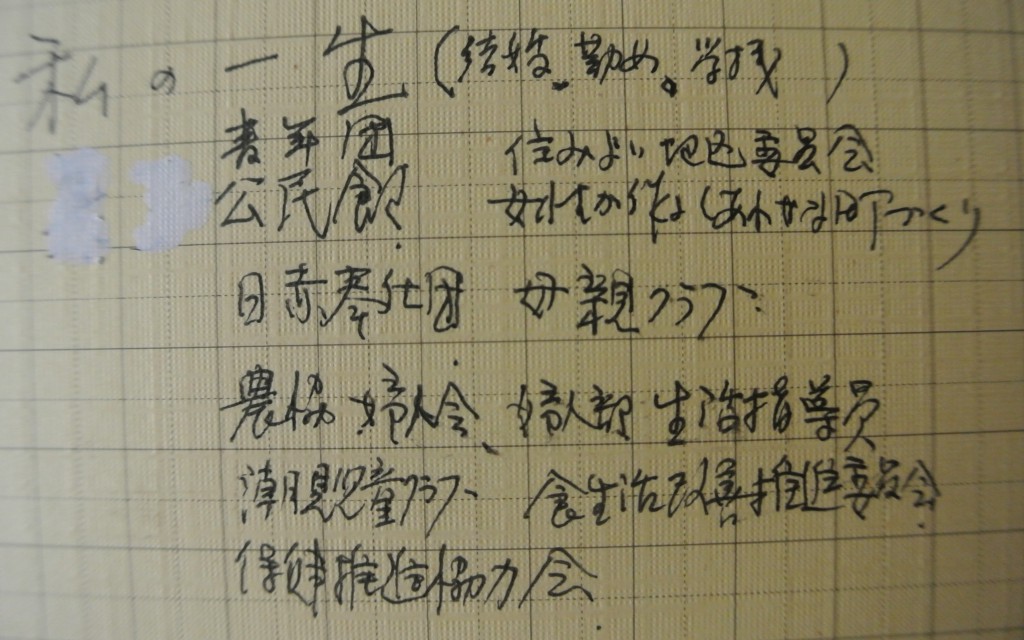 私の一生(結婚.勤め.学校)
青年団 住みよい地区委員会
公民館 女性が作るしあわせな町づくり
日赤奉仕団 母親クラブ
農協婦人会、婦人部生活指導員
児童クラブ 食生活改善推進委員会
保健推進協力会